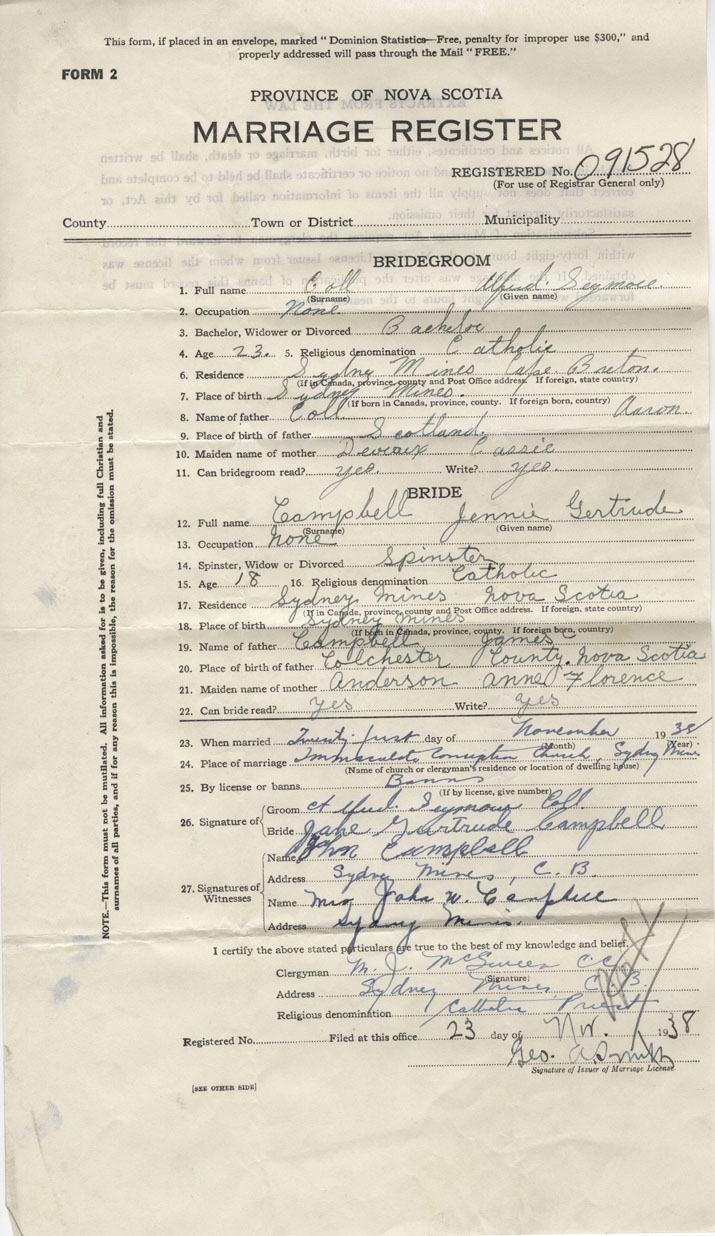 This form, if placed in an envelope, marked "Dominion Statistics—Free, penalty for improper use $300," and
properly addressed will pass through the Mail "FREE."
FORM 2
PROVINCE OF NOVA SCOTIA
MARRIAGE REGISTER
REGISTERED No. 091528
(For use of Registrar General only)
County Town or District Municipality
BRIDEGROOM
1. Full name Coll Alfred Seymour
(Surname) (Given name)
2. Occupation None
3. Bachelor, Widower or Divorced Bachelor
4. Age 23. 5. Religious denomination Catholic
6. Residence Sydney Mines Cape Breton.
(If in Canada, province, county and Post Office address. If foreign, state country)
7. Place of birth Sydney Mines.
(If born in Canada, province, county. If foreign born, country)
8. Name of father Coll Aaron.
9. Place of birth of father Scotland.
10. Maiden name of mother Deveaux Cassie
11. Can bridegroom read? yes. Write? yes.
BRIDE
12. Full name Campbell Jennie Gertrude
(Surname) (Given name)
13. Occupation None
14. Spinster, Widow or Divorced Spinster
15. Age 18 16. Religious denomination Catholic
17. Residence Sydney Mines Nova Scotia
(If in Canada, province, county and Post Office address. If foreign, state country)
18. Place of birth Sydney Mines
(If born in Canada, province, county. If foreign born, country)
19. Name of father Campbell James
20. Place of father Colchester County, Nova Scotia
21. Maiden name of mother Anderson Anne Florence
22. Can bride read? yes Write? yes
23. When married Twenty-first day of November 1938
(Month) (Year)
24. Place of marriage Immaculate Conception Church, Sydney Mines
(Name of church or clergyman's residence or location of dwelling house)
25. By license or banns Banns
(If by license, give number)
26. Signature of Groom Alfred Seymour Coll
Bride Jane Gertrude Campbell
27. Signatures of Witnesses Name John Campbell
Address Sydney Mines, C. B.
Name Mrs John W. Campbell
Address Sydney Mines.
I certify the above stated particulars are true to the best of my knowledge and belief.
Clergyman M. J. McSween C.C.
(Signature)
Address Sydney Mines, C. B.
Religious denomination Catholic Priest
Registered No. Filed at this office 23 day of Nov. 1938
Geo. A. Smith
Signature of Issuer of Marriage License.
[SEE OTHER SIDE]
NOTE.—This form must not be mutilated. All information asked for is to be given, including full Christian and
surnames of all parties, and if for any reason this is impossible, the reason for the omission must be stated.